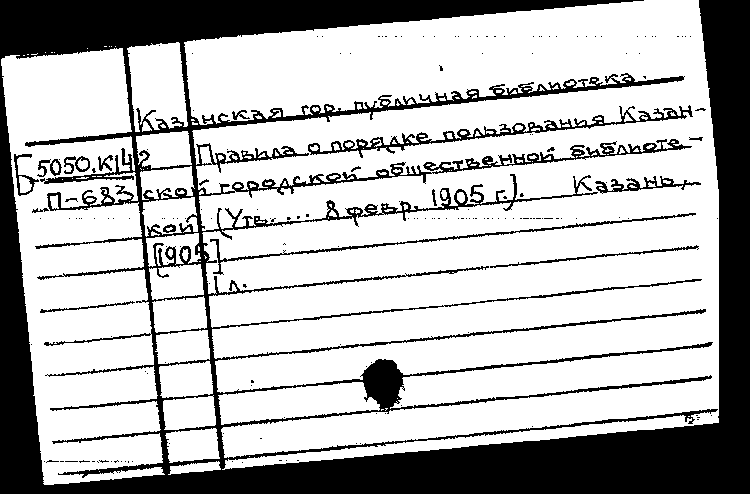 Казанская гор. публичная библиотека.
Б 5050.К142 Правила о порядке пользования Казан-
П-683 ской городской общественной библиоте-
кой. (Утв. ... 8 февр. 1905 г.). Казань,
[1905].
1 л.